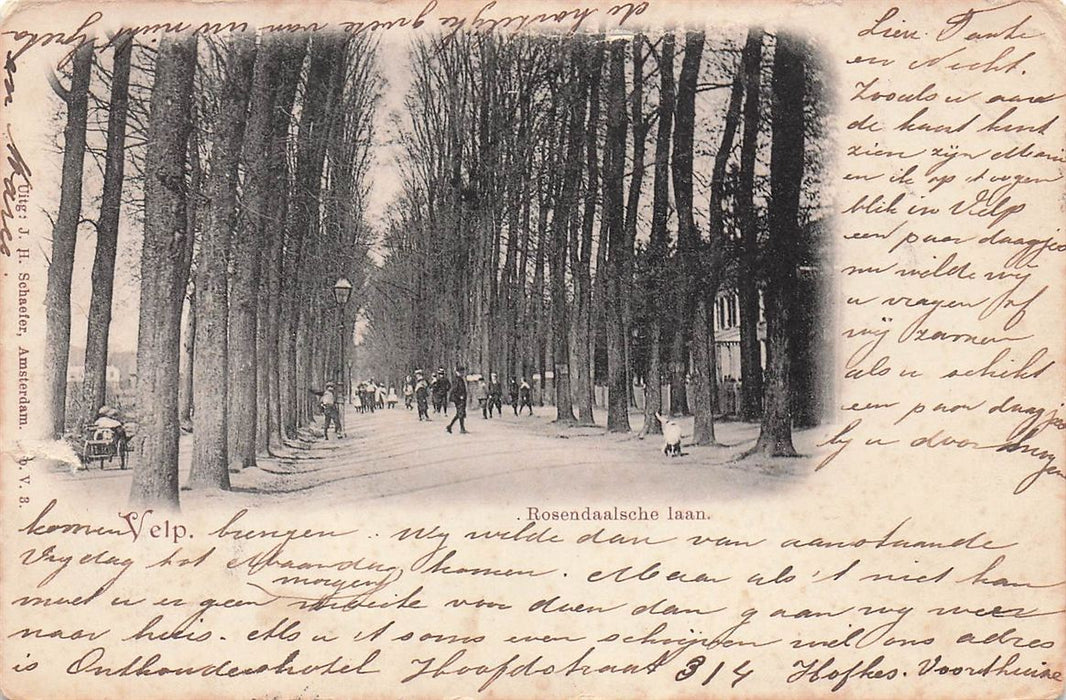 Lien. Tante
en Necht.
Zooals u aan
de kaart kunt
zien zijn Marie
en ik op 't oogen
blik in Velp
een paar daagjes
nu wilde wij
u vragen of
wij zamen
als u schikt
een paar daagjes
bij u door
komen brengen .. Wy wilde dan van aanstaande
Vrydag tot Maandag komen. Maar als 't niet kan
morgen
moet u er geen moeite voor doen dan gaan wy weer
naar huis. Als u 't soms even schrijven wil ons adres
is Onthoudershotel Hoofdstraat 314 Hofkes. Voorthuize
de hartelyke groete van uw nicht
en Marie.
Velp.
Rosendaalsche laan.
Uitg: J. H. Schaefer, Amsterdam. D. V. 3.